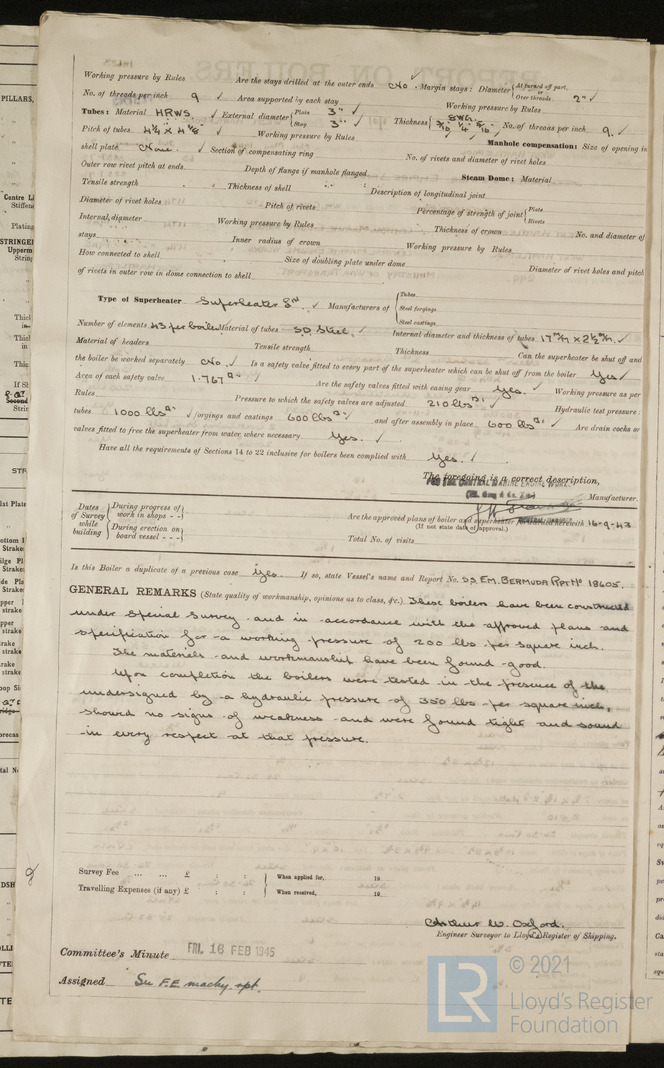 Working pressure by Rules Are the stays drilled at the outer ends No. Margin stays: Diameter { At turned off part, or Over threads 2"
No. of threads per inch 9 Area supported by each stay Working pressure by Rules
Tubes: Material H.R.W.S. External diameter { Plain 3" Stay 3" Thickness { 8 W.G. 3/16 1/4 5/16 No. of threads per inch 9.
Pitch of tubes 4 1/4 x 4 1/8 Working pressure by Rules Manhole compensation: Size of opening in
shell plate None. Section of compensating ring No. of rivets and diameter of rivet holes
Outer row rivet pitch at ends Depth of flange if manhole flanged Steam Dome: Material
Tensile strength Thickness of shell Description of longitudinal joint
Diameter of rivet holes Pitch of rivets Percentage of strength of joint { Plate Rivets
Internal diameter Working pressure by Rules Thickness of crown No. and diameter of
stays Inner radius of crown Working pressure by Rules
How connected to shell Size of doubling plate under dome Diameter of rivet holes and pitch
of rivets in outer row in dome connection to shell
Type of Superheater Superheater Manufacturers of { Tubes Steel forgings Steel castings
Number of elements 43 per boiler Material of tubes S.D. Steel. Internal diameter and thickness of tubes 17 m/m x 2 1/2 m/m.
Material of headers Tensile strength Thickness Can the superheater be shut off and
the boiler be worked separately No. Is a safety valve fitted to every part of the superheater which can be shut off from the boiler Yes
Area of each safety valve 1.767 Are the safety valves fitted with easing gear Yes. Working pressure as per
Rules Pressure to which the safety valves are adjusted 210 lbs Hydraulic test pressure:
tubes 1000 lbs forgings and castings 600 lbs and after assembly in place 600 lbs Are drain cocks or
valves fitted to free the superheater from water where necessary Yes.
Have all the requirements of Sections 14 to 22 inclusive for boilers been complied with Yes.
The foregoing is a correct description,
FOR THE CENTRAL MARINE ENGINE WORKS.
Manufacturer.
Dates of Survey while building { During progress of work in shops - - } { During erection on board vessel - - - }
Are the approved plans of boiler and superheater forwarded herewith 16-9-43
(If not state date of approval.)
Total No. of visits
Is this Boiler a duplicate of a previous case Yes. If so, state Vessel's name and Report No. S.S. EM. BERMUDA RPT No 18605.
GENERAL REMARKS (State quality of workmanship, opinions as to class, &c.) These boilers have been constructed
under special survey and in accordance with the approved plans and
specification for a working pressure of 200 lbs per square inch.
The materials and workmanship have been found good.
Upon completion the boilers were tested in the presence of the
undersigned by a hydraulic pressure of 350 lbs per square inch,
showed no signs of weakness and were found tight and sound
in every respect at that pressure.
Survey Fee ... ... £ : : When applied for, 19
Travelling Expenses (if any) £ : : When received, 19
Arthur W. Oxford.
Engineer Surveyor to Lloyd's Register of Shipping.
Committee's Minute FRI. 16 FEB 1945
Assigned See F.E. machy. rpt.
© 2021
LR
Lloyd's Register
Foundation
PILLARS,